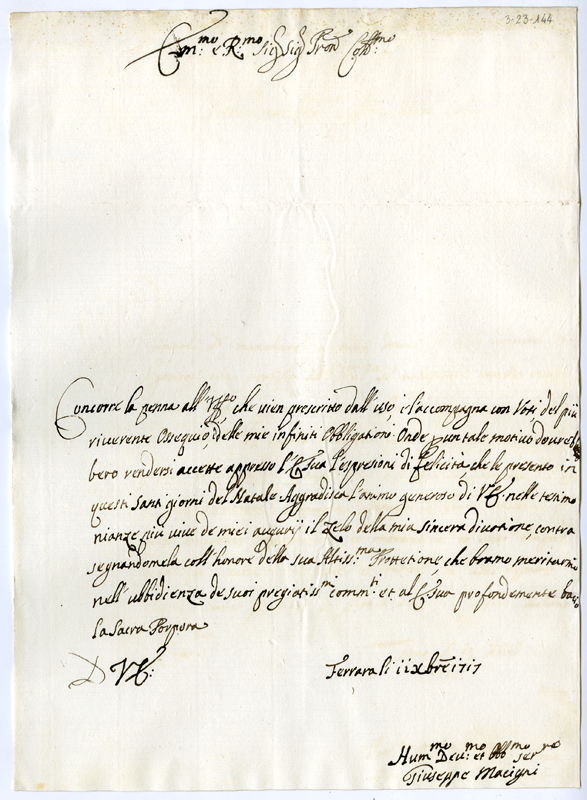 3-23-144
Em:mo e R:mo Sig: Sig: Pron Col:mo
Concorre la penna all' che vien prescrito dall'uso e l'accompagna con Voti del più
riverente Ossequio, delle mie infiniti Obbligationi. Onde p un tale motivo dovreb
bero rendersi accette appresso l'E Sua l'espresioni di felicità che le presento in
questi Santi giorni del Natale Aggradisca l'animo generoso di VE: nelle testimo
nianze più vive de miei augurij il Zelo della mia sincera divotione, contra
segnandomela coll'honore della sua Altiss:ma Prottetione che bramo meritarmi
nell'ubbidienza de suoi pregiatiss:mi comm:ti et al E Sua profondemente bacio
la Sacra Porpora
D VE:
Ferrara li 11 xbre 1717
Hum:mo Dev:mo et Obb:mo ser:re
Giuseppe Macigni